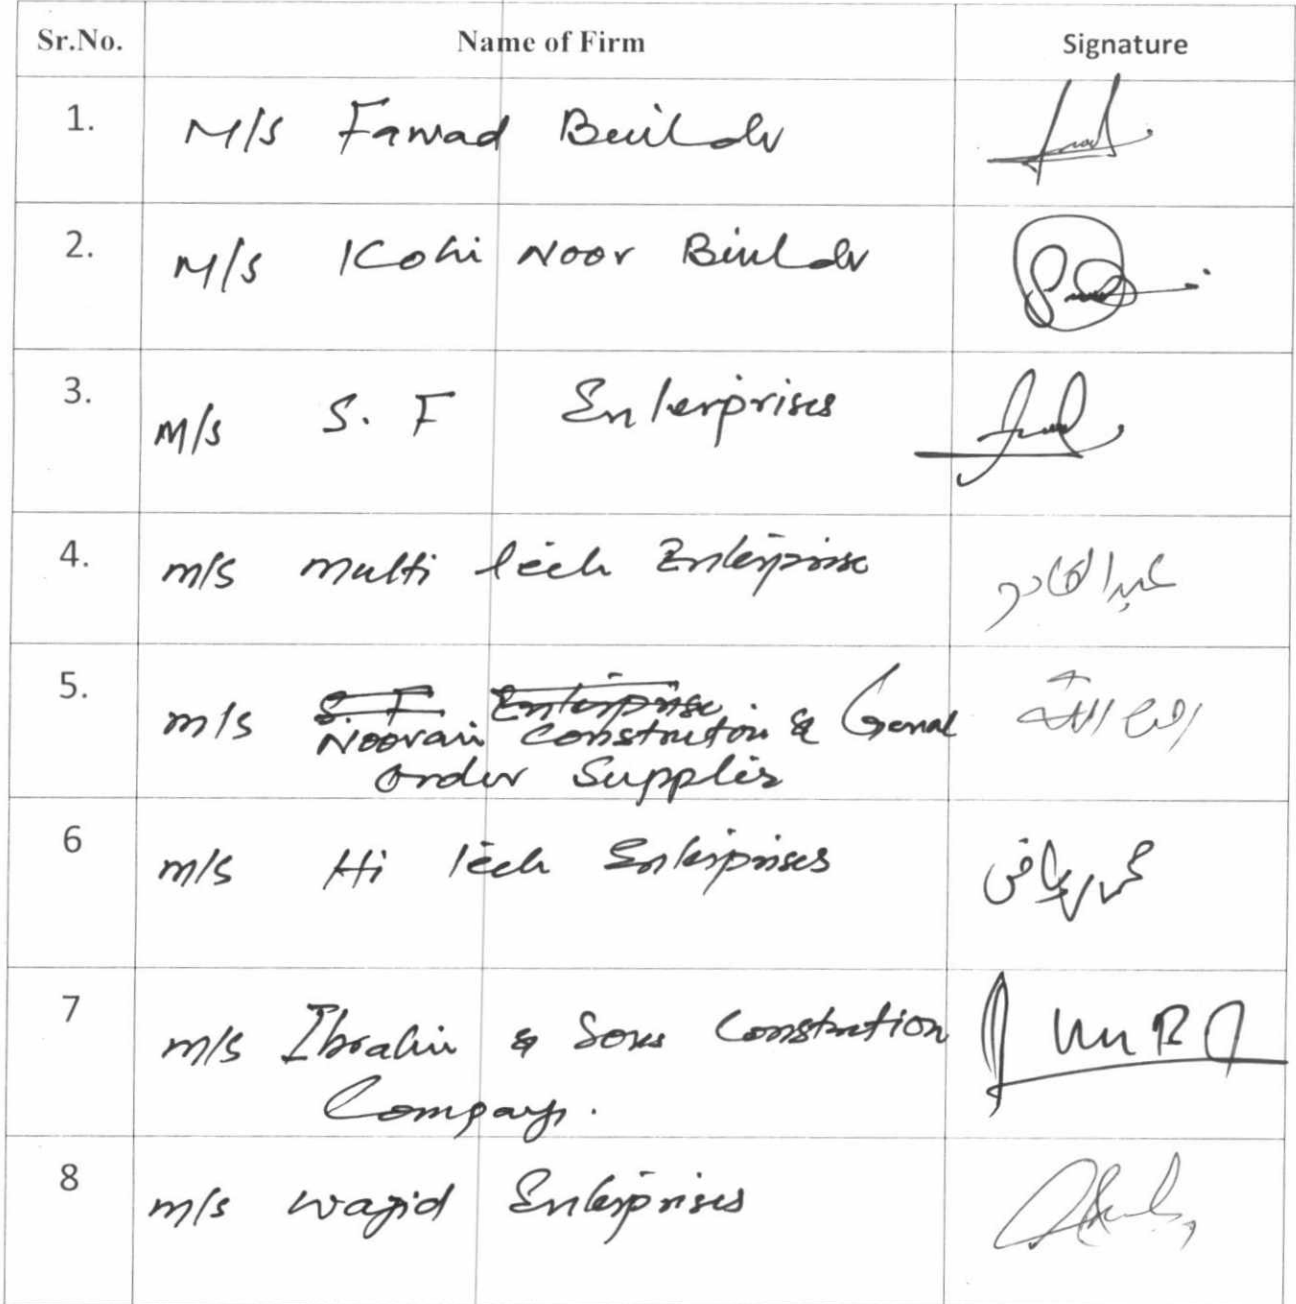 Sr.No. Name of Firm Signature
1. M/S Fawad Builder
2. M/S Kohi Noor Builder
3. M/S S. F Enterprises
4. m/s multi tech Enterprise عبدالقادر
5. m/s S. F Enterprise
Noorani Constrution & Genral
order Supplier
6 m/s Hi tech Enterprises محمد ریاض
7 m/s Ibrahim & Sons Constration
Company.
8 m/s wajid Enterprises